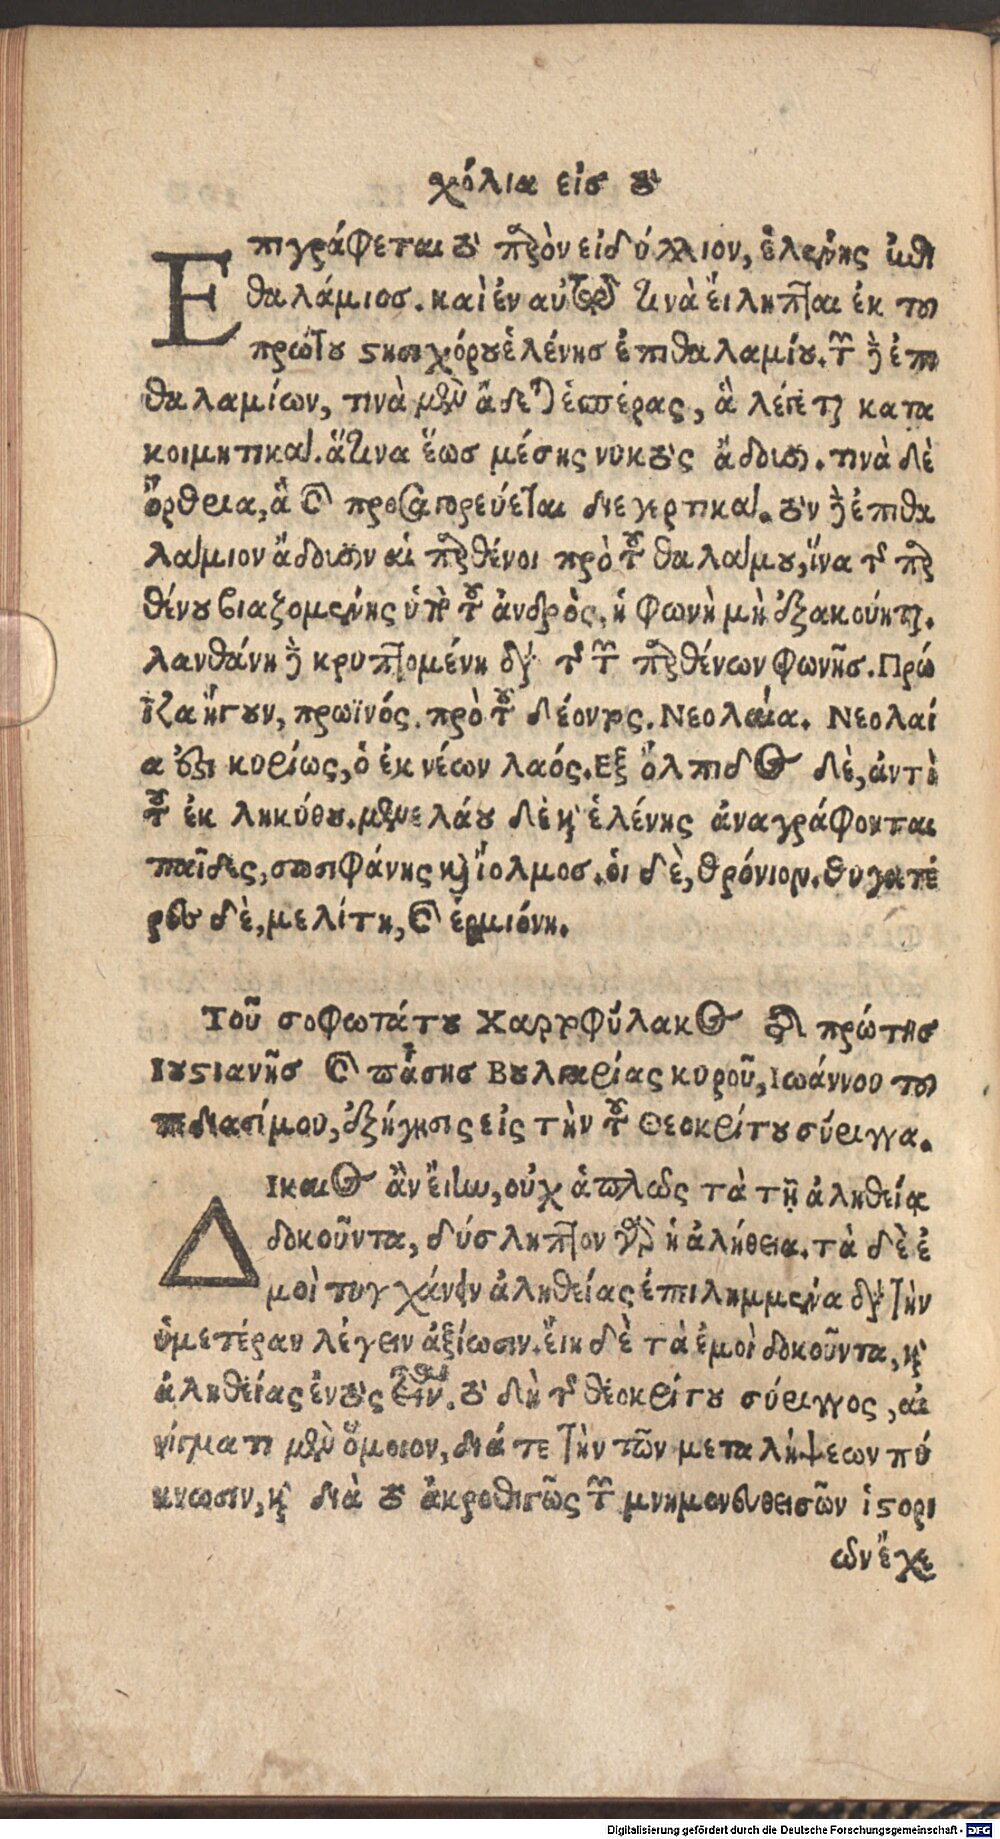 χόλια εἰς τὸ
Επιγράφεται τὸ παρὸν εἰδύλλιον, ἑλένης ἐπι
θαλάμιος. καὶ ἐν αὐτῷ τινὰ εἴληπται ἐκ του
πρώτου στησιχόρου ἑλένης ἐπιθαλαμίου. τῶν δὲ ἐπι
θαλαμίων, τινὰ μὲν ἄδεται ἑσπέρας, ἃ λέγεται κατα
κοιμητικά. ἅτινα ἕως μέσης νυκτὸς ἄδουσι. τινὰ δὲ
ὄρθρια, ἃ καὶ προσαγορεύεται διεγερτικά. τὸν δὲ ἐπιθα
λάμιον ἄδουσιν αἱ παρθένοι πρὸ τοῦ θαλάμου, ἵνα τῆς παρ
θένου βιαζομένης ὑπὸ τοῦ ἀνδρὸς, ἡ φωνὴ μὴ ἐξακούηται.
λανθάνη δὲ κρυπτομένη διὰ τῆς τῶν παρθένων φωνῆς. Πρώ
ϊζα ἤγουν, πρωϊνός. πρὸ τοῦ δέοντος. Νεολαία. Νεολαί
α ἐστι κυρίως, ὁ ἐκ νέων λαός. Εξ ὄλπιδος δὲ, ἀντὶ
τοῦ ἐκ ληκύθου. μενελάου δὲ καὶ ἑλένης ἀναγράφονται
παῖδες, σωσιφάνης καὶ ἴολμος. οἱ δὲ, θρόνιον. θυγατέ
ρες δὲ, μελίτη, καὶ ἑρμιόνη.
Τοῦ σοφωτάτου Χαρτοφύλακος τῆς πρώτης
Ιουστιανῆς καὶ πάσης Βουλγαρίας κυροῦ, Ιωάννου του
πεδιασίμου, ἐξήγησις εἰς τὴν τοῦ Θεοκρίτου σύριγγα.
Δίκαιος ἂν εἴην, οὐχ ἁπλῶς τὰ τῇ ἀληθείᾳ
δοκοῦντα, δύσληπτον γὰρ ἡ ἀλήθεια. τὰ δὲ ἐ
μοὶ τυγχάνειν ἀληθείας ἐπιλημμένα διὰ τὴν
ὑμετέραν λέγειν ἀξίωσιν. εἴη δὲ τὰ ἐμοὶ δοκοῦντα, καὶ
ἀληθείας ἐντὸς. τὸ δὴ τῆς θεοκρίτου σύριγγος, αἰ
νίγματι μὲν ὅμοιον, διά τε τὴν τῶν μεταλήψεων πύ
κνωσιν, καὶ διὰ τὸ ἀκροθιγῶς τῶν μνημονευθεισῶν ἱστορι
ῶν ἔχε